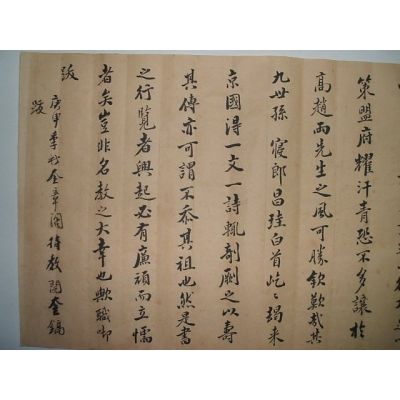 策盟府耀汗青恐不多讓於
高趙兩先生之風可勝欽歎哉其
九世孫寢郎昌珪白首屹屹竭來
京國得一文一詩輒剞劂之以壽
其傳亦可謂不忝其祖也然是書
之行覽者興起必有廉頑而立懦
者矣豈非名教之大幸也歟職
跋
庚申季秋奎章閣待教閔奎鎬
跋